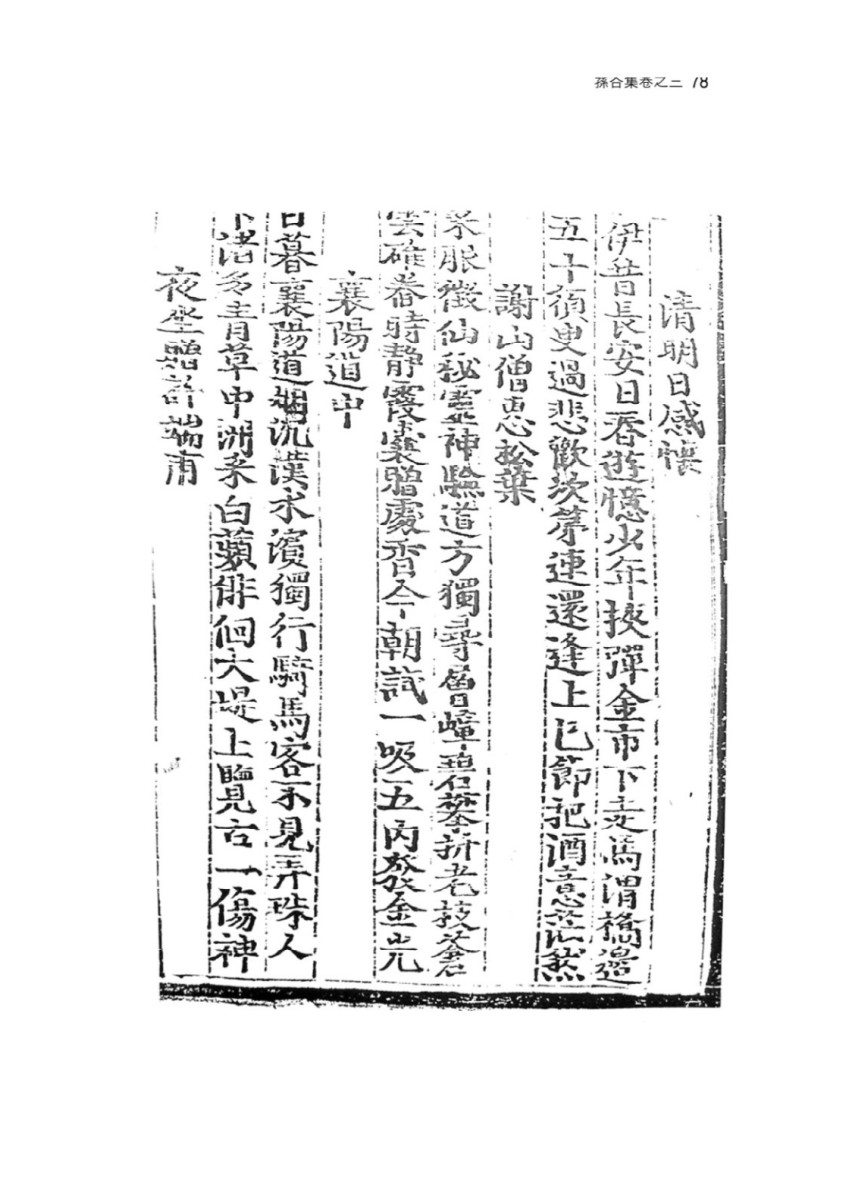 孫谷集卷之三 78
清明日感懷
伊昔長安日春遊憶少年挾彈金市下走馬渭橋邊
五十須臾過悲歡坎𡸁連還逢上巳節把酒意茫然
謝山僧惠松葉
采服徵仙秘靈神驗道方獨尋層嶂碧攀折老枝蒼
雲碓舂時靜霞囊贈處香今朝試一吸五內發金光
襄陽道中
日暮襄陽道烟沉漢水濱獨行騎馬客不見弄珠人
下渚多靑草中洲采白蘋徘徊大堤上覽古一傷神
夜坐贈許端甫